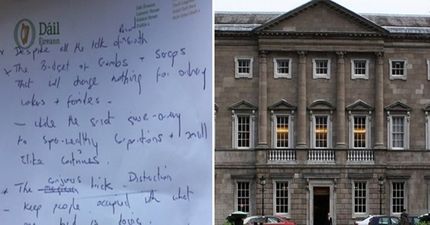 Dáil
Éireann
Despite all the talk of
The Budget of Crumbs + Soaps
That will change nothing for ordinary
workers + families -
- while the great give-away
to super-wealthy Corporations + small
Elite Continues.
* The Conjurers trick - Distraction
- Keep people occupied with what
one hand is doing